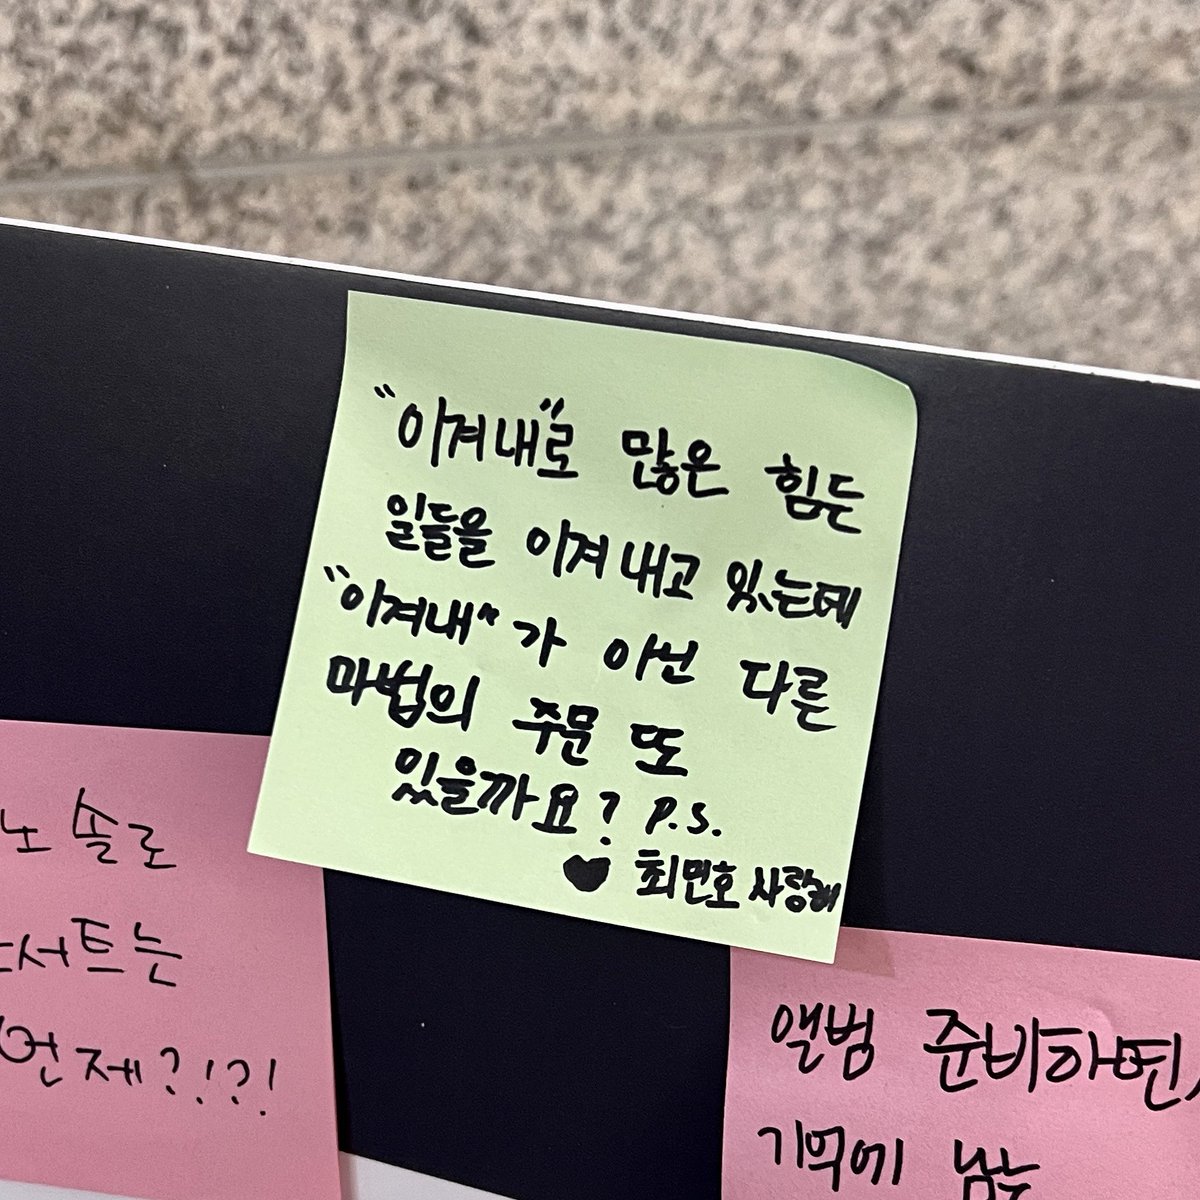 "이겨내"로 많은 힘든
일들을 이겨내고 있는데
"이겨내"가 아닌 다른
마법의 주문 또
있을까요? P.S.
♥ 최민호 사랑해
노 솔로
서트는
언제?!?!
앨범 준비하면,
기억에 남는